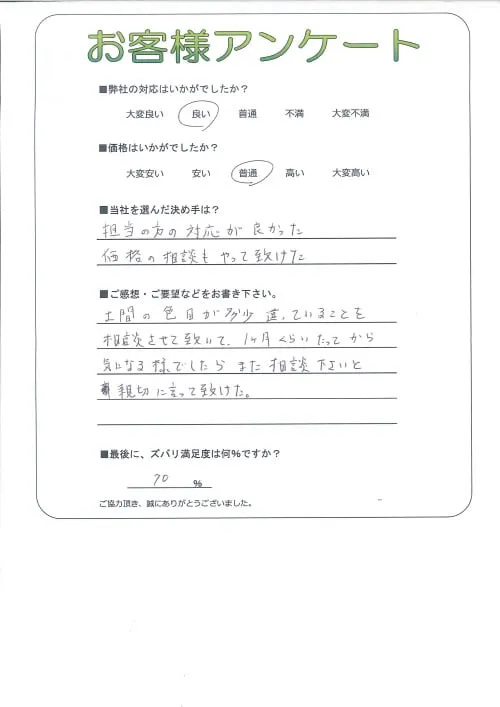 お客様アンケート
■弊社の対応はいかがでしたか？
大変良い 良い 普通 不満 大変不満
■価格はいかがでしたか？
大変安い 安い 普通 高い 大変高い
■当社を選んだ決め手は？
担当の方の対応が良かった
価格の相談もやって致けた
■ご感想・ご要望などをお書き下さい。
土間の色目が多少違っていることを
相談させて致いて、1ヶ月くらいたってから
気になる様でしたらまた相談下さいと
親切に言って致けた。
■最後に、ズバリ満足度は何%ですか？
70 %
ご協力頂き、誠にありがとうございました。